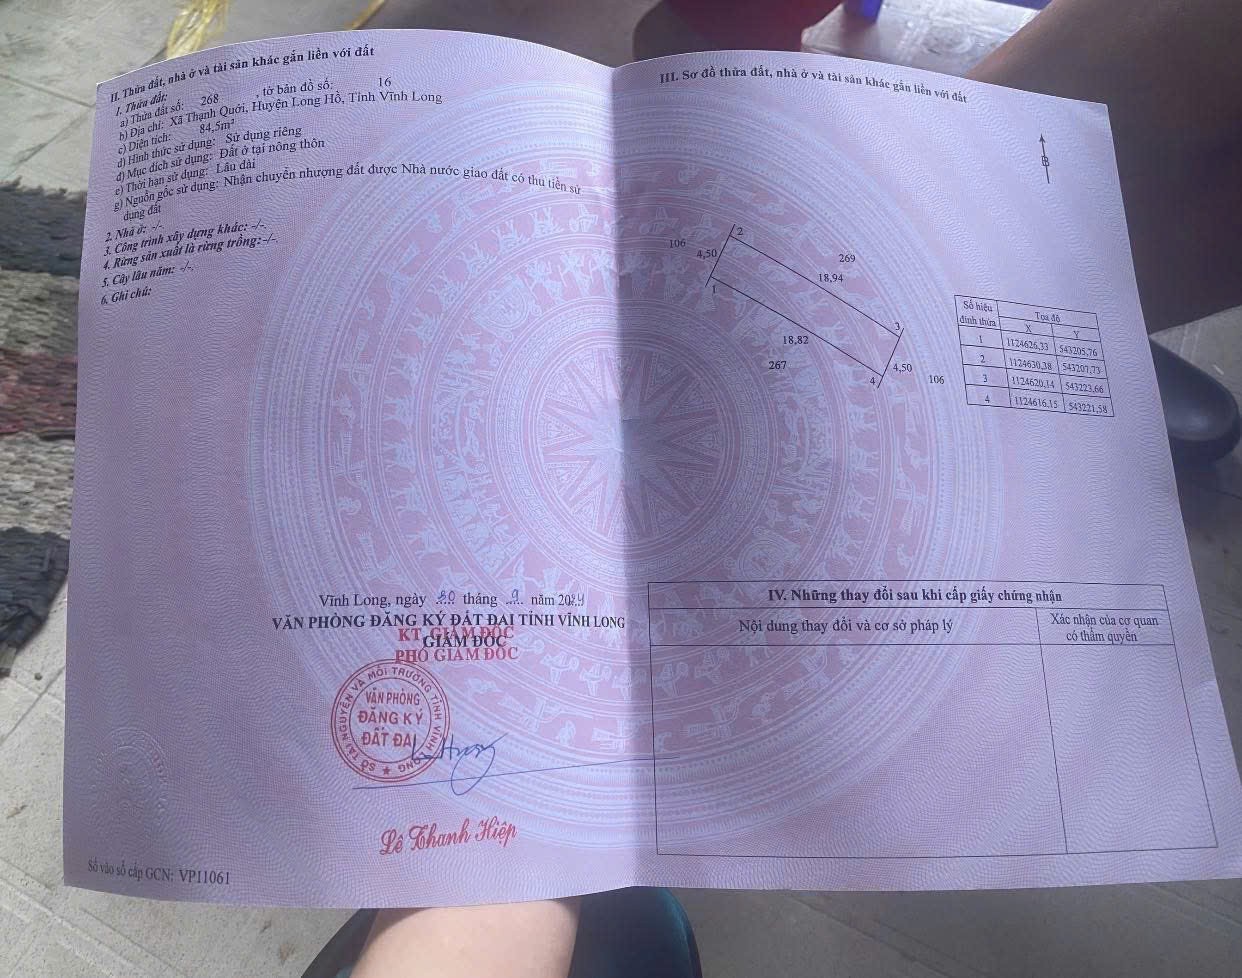 II. Thửa đất, nhà ở và tài sản khác gắn liền với đất
1. Thửa đất:
a) Thửa đất số: 268 , tờ bản đồ số: 16
b) Địa chỉ: Xã Thạnh Quới, Huyện Long Hồ, Tỉnh Vĩnh Long
c) Diện tích: 84,5m²
d) Hình thức sử dụng: Sử dụng riêng
đ) Mục đích sử dụng: Đất ở tại nông thôn
e) Thời hạn sử dụng: Lâu dài
g) Nguồn gốc sử dụng: Nhận chuyển nhượng đất được Nhà nước giao đất có thu tiền sử
dụng đất
2. Nhà ở: -/-.
3. Công trình xây dựng khác: -/-.
4. Rừng sản xuất là rừng trồng: -/-.
5. Cây lâu năm: -/-.
6. Ghi chú:
Vĩnh Long, ngày 20 tháng 9 năm 2024
VĂN PHÒNG ĐĂNG KÝ ĐẤT ĐAI TỈNH VĨNH LONG
KT. GIÁM ĐỐC
GIÁM ĐỐC
PHÓ GIÁM ĐỐC
SỞ TÀI NGUYÊN VÀ MÔI TRƯỜNG TỈNH VĨNH LONG
VĂN PHÒNG
ĐĂNG KÝ
ĐẤT ĐAI
Lê Thanh Hiệp
Số vào sổ cấp GCN: VP11061
III. Sơ đồ thửa đất, nhà ở và tài sản khác gắn liền với đất
B
106
2
4,50
269
18,94
1
3
18,82
267
4
4,50
106
Số hiệu đỉnh thửa Tọa độ
X Y
1 1124626,33 543205,76
2 1124630,38 543207,73
3 1124620,14 543223,66
4 1124616,15 543221,58
IV. Những thay đổi sau khi cấp giấy chứng nhận
Nội dung thay đổi và cơ sở pháp lý
Xác nhận của cơ quan
có thẩm quyền